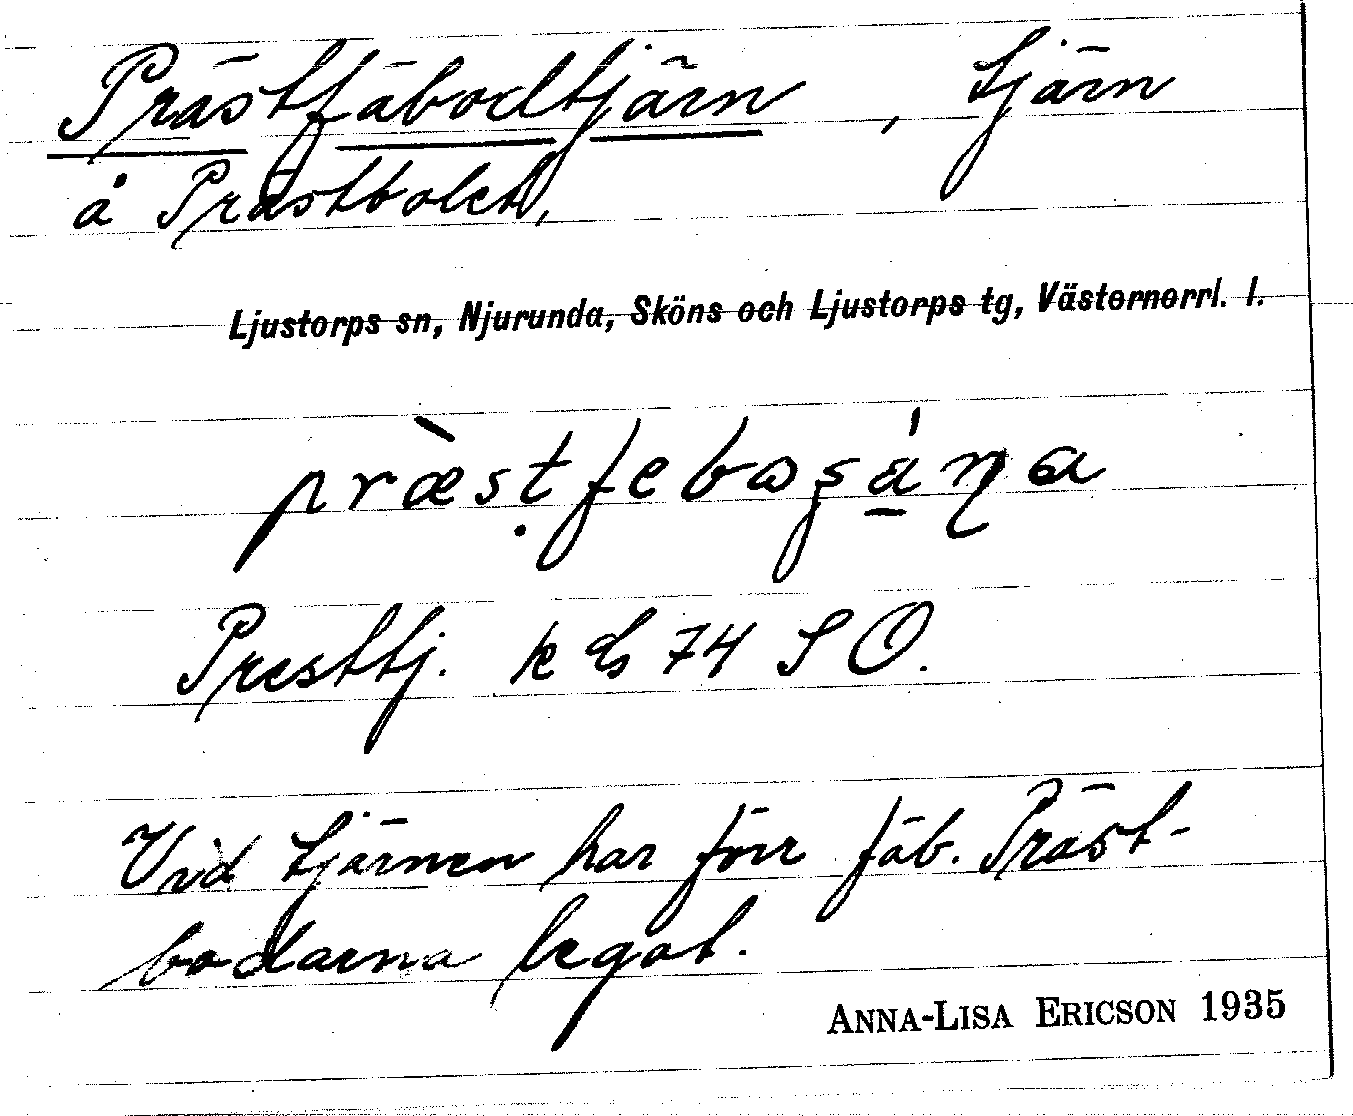 Prästfäbodtjärn, tjärn
å Prästbolet,
Ljustorps sn, Njurunda, Sköns och Ljustorps tg, Västernorrl. l.
Presttj. k 74 S O.
Vid tjärnen har förr fäb. Präst-
bodarna legat.
ANNA-LISA ERICSON 1935